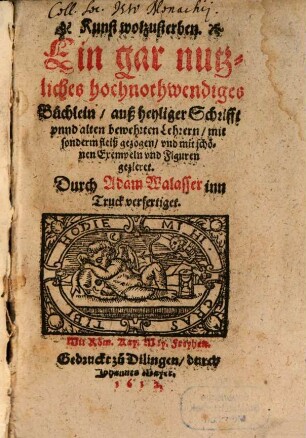 Coll. Soc. Jesu Monachij.
Kunst wolzusterben.
Ein gar nutz-
liches hochnothwendiges
Büchlein / auß heyliger Schrifft
vnnd alten bewehrten Lehrern / mit
sonderm fleiß gezogen / vnd mit schö-
nen Exempeln vnd Figuren
gezieret.
Durch Adam Walasser inn
Truck verfertiget.
HODIE MIHI
CRAS TIBI
Mit Röm. Kay. May. Freyhen.
Gedruckt zů Dilingen / durch
Johannes Mayer.